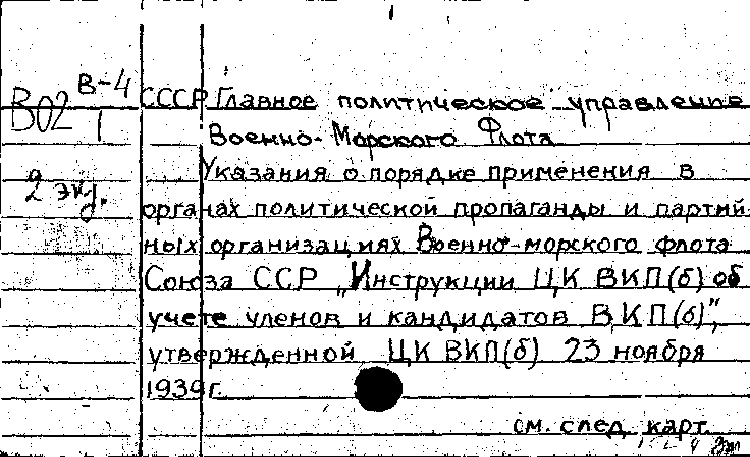 В-4 СССР Главное политическое управление
В02 1 Военно-Морского Флота
Указания о порядке применения в
2 экз. органах политической пропаганды и партий
ных организациях Военно-морского флота
Союза ССР „Инструкции ЦК ВКП(б) об
учете членов и кандидатов ВКП(б)",
утвержденной ЦК ВКП(б) 23 ноября
1939 г.
см. след. карт.